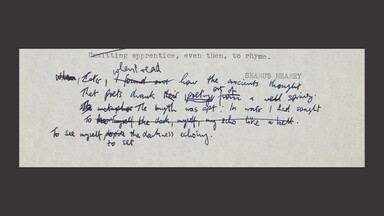 Unwitting apprentice, even then, to rhyme.
SEAMUS HEANEY
read
Later, I found out how the ancients thought
out of
That poets drank their poetry from a well spring.
The metaphor The myth was apt: In water I had sought
To myself the dark, myself, my echo like a
To see myself, the darkness echoing.
to set